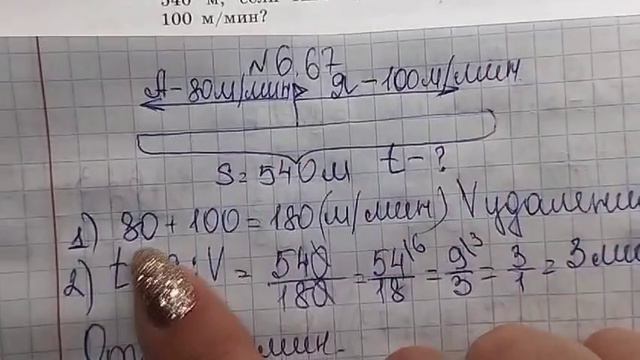 100 м/мин?
№ 6.67
А – 80м/мин Я – 100м/мин
S = 540м t – ?
1) 80 + 100 = 180 (м/мин) V удалени
2) t : V = 540/180 = 54/18 \6 = 9/3 \3 = 3/1 = 3 ми
мин.